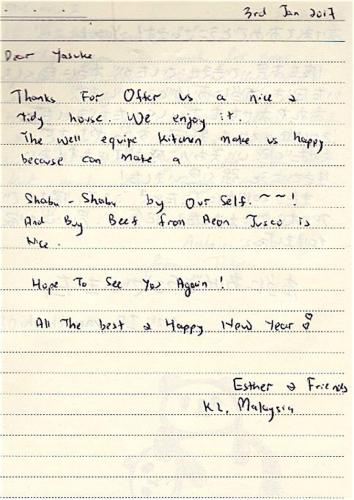 3rd Jan 2017
Dear Yasuke
Thanks For Offer us a nice &
tidy house. We enjoy it.
The well equipe kitchen make us happy
because can make a
Shabu - Shabu by Our Self. ~~!
And Buy Beef from Aeon Jusco is
Nice.
Hope To See You Again!
All The best & Happy New Year!
Esther & Friends
KL, Malaysia